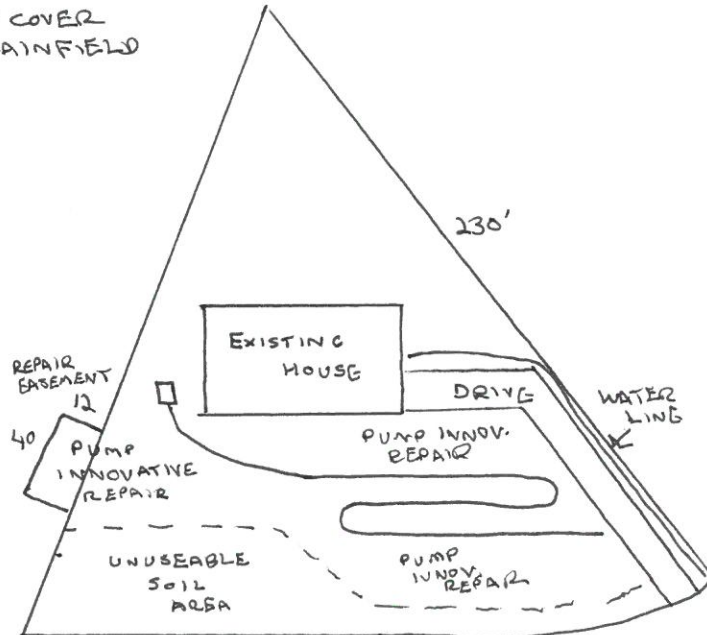 COVER
AINFIELD
230'
EXISTING
HOUSE
REPAIR
EASEMENT
12
40
DRIVE
WATER
LINE
PUMP
INNOVATIVE
REPAIR
PUMP INNOV.
REPAIR
UNUSEABLE
SOIL
AREA
PUMP
INNOV.
REPAIR